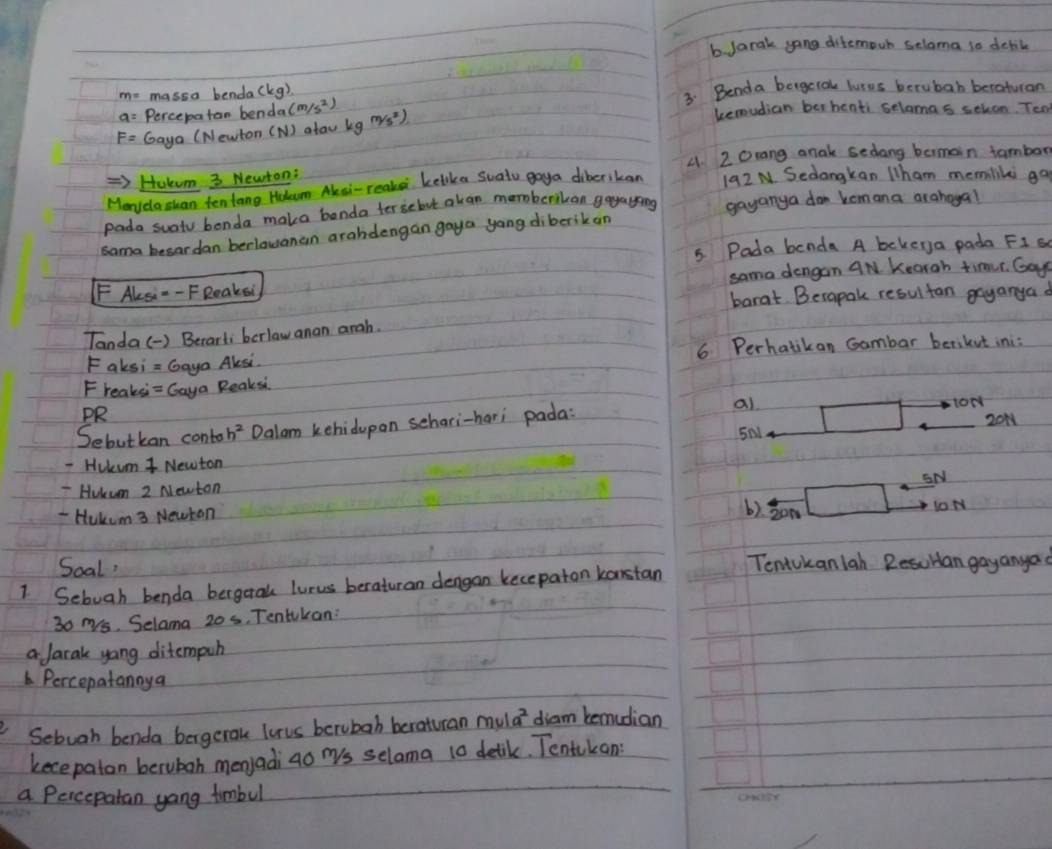 m= massa benda (kg)
a= Percepatan benda (m/s²)
F= Gaya (Newton (N) atau kg m/s²)
=> Hukum 3 Newton:
Menjelaskan tentang Hukum Aksi-reaksi ketika suatu gaya diberikan
pada suatu benda maka benda tersebut akan memberikan gaya yang
sama besar dan berlawanan arah dengan gaya yang diberikan
F Aksi = -F Reaksi
Tanda (-) Berarti berlawanan arah.
F aksi = Gaya Aksi.
F reaksi = Gaya Reaksi.
PR
Sebutkan contoh² Dalam kehidupan sehari-hari pada:
- Hukum 1 Newton
- Hukum 2 Newton
- Hukum 3 Newton
Soal:
1 Sebuah benda bergerak lurus beraturan dengan kecepatan konstan
30 m/s. Selama 20 s. Tentukan:
a Jarak yang ditempuh
b Percepatannya
2 Sebuah benda bergerak lurus berubah beraturan mula² diam kemudian
kecepatan berubah menjadi 40 m/s selama 10 detik. Tentukan:
a Percepatan yang timbul
b. Jarak yang ditempuh selama 10 detik
3. Benda bergerak lurus berubah beraturan
kemudian berhenti selama 5 sekon. Ten
4. 2 Orang anak sedang bermain tamban
192 N Sedangkan Ilham memiliki ga
gayanya dan kemana arahnya!
5 Pada benda A bekerja pada F1 s
sama dengan 4N. Kearah timur. Gay
barat. Berapak resultan gayanya d
6. Perhatikan Gambar berikut ini:
a).
10N
5N
20N
5N
b)
20N
10N
Tentukanlah Resultan gayanya